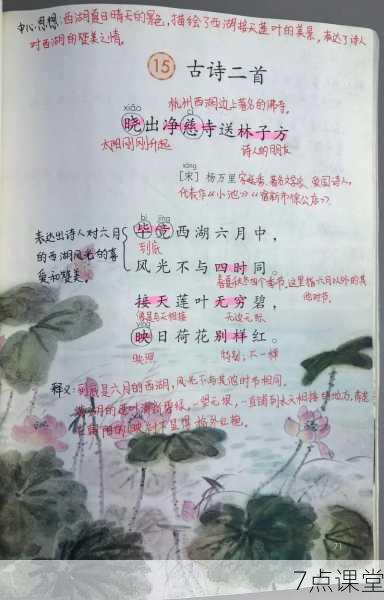 中心思想:西湖夏日晴天的景色,描绘了西湖接天莲叶的美景,表达了诗人
对西湖的赞美之情。
15 古诗二首
杭州西湖边上著名的佛寺。
xiǎo cí
晓出净慈寺送林子方
太阳刚刚升起 诗人的朋友
sòng
[宋] 杨万里
代表作《小池》《宿新市徐公店》。
表达出诗人对六月
的西湖风光的喜
爱和赞美。
bì jìng
毕竟西湖六月中,
到底
风光不与四时同。
春夏秋冬四个季节,这里指六月以外的其
他时节。
接天莲叶无穷碧,
像是与天相接 无边无际
yìng
映日荷花别样红。
映照 特别,不一样
释义:到底是六月的西湖,风光不与其他时节相同。
71
7点课堂